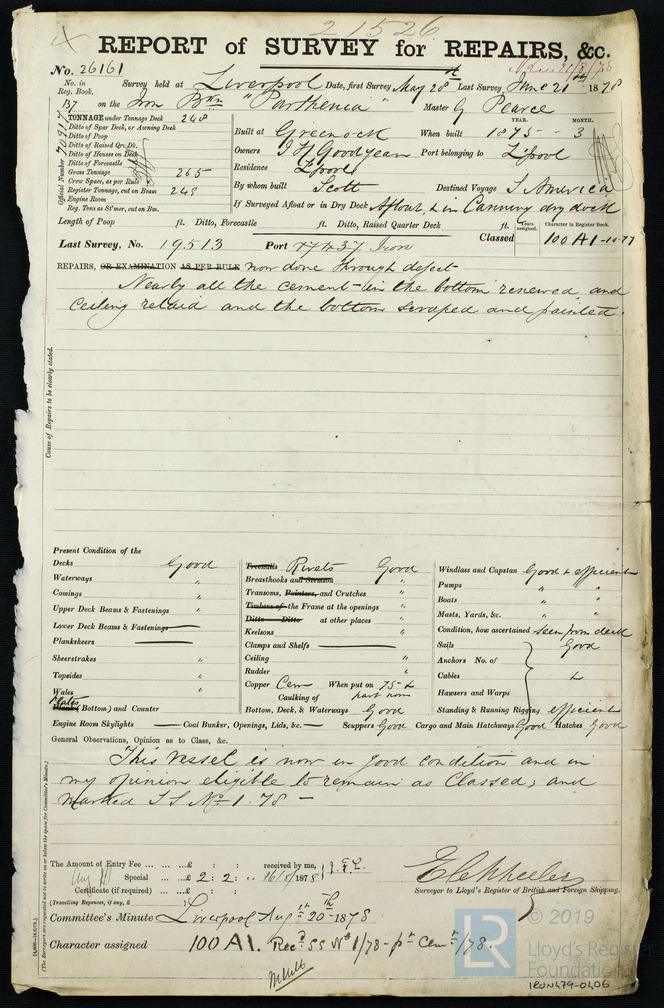 21526
REPORT of SURVEY for REPAIRS, &c.
No. 26161 Survey held at Liverpool Date, first Survey May 28th Last Survey June 21st 1878
No. in Reg. Book.
137 on the Iron Bkn "Parthenia" Master G Pearce
TONNAGE under Tonnage Deck 248
Ditto of Spar Deck, or Awning Deck
Ditto of Poop
Ditto of Raised Qr. Dk.
Ditto of Houses on Deck
Ditto of Forecastle
Gross Tonnage 265
Crew Space, as per Rule
Register Tonnage, cut on Beam 249
Engine Room
Reg. Tons as St'mer, cut on Bm.
Official Number 70917
Built at Greenock When built 1875 - 3
YEAR. MONTH.
Owners Goodyear Port belonging to L'pool
Residence L'pool
By whom built Scott Destined Voyage S America
If Surveyed Afloat or in Dry Dock Afloat, & in Canning dry dock
Length of Poop ft. Ditto, Forecastle ft. Ditto, Raised Quarter Deck ft.
Years assigned. Character in Register Book.
Last Survey, No. 19513 Port Iron Classed 100 A1 -10-77
REPAIRS, OR EXAMINATION AS PER RULE now done through defect
Nearly all the cement in the bottom renewed and
Ceiling relaid and the bottom scraped and painted.
Cause of Repairs to be clearly stated.
Present Condition of the
Decks Good
Waterways "
Comings "
Upper Deck Beams & Fastenings "
Lower Deck Beams & Fastenings
Planksheers
Sheerstrakes "
Topsides "
Wales "
Plates (Bottom) and Counter "
Treenails Rivets Good
Breasthooks and Stemson "
Transoms, Pointers, and Crutches "
Timbers of the Frame at the openings "
Ditto Ditto at other places "
Keelsons "
Clamps and Shelfs
Ceiling "
Rudder "
Copper Cem When put on 75 &
Caulking of part now
Bottom, Deck, & Waterways Good
Windlass and Capstan Good & efficient
Pumps " "
Boats " "
Masts, Yards, &c. " "
Condition, how ascertained seen from deck
Sails Good
Anchors No. of
Cables &
Hawsers and Warps
Standing & Running Rigging efficient
Engine Room Skylights Coal Bunker, Openings, Lids, &c. Scuppers Good Cargo and Main Hatchways Good Hatches Good
General Observations, Opinion as to Class, &c.
This vessel is now in good condition and in
my opinion eligible to remain as Classed; and
marked S S No 1. 78 -
The Amount of Entry Fee ... ... ...£ : : received by me,
Special ... ... ...£ 2 : 2 : 16/8/1878
Certificate (if required) ... ...£ : :
(Travelling Expenses, if any, £ )
E C Wheeler
Surveyor to Lloyd's Register of British and Foreign Shipping.
Committee's Minute Liverpool Augt 20th 1878
Character assigned 100 A1. Recd SS No 1/78 - pt Cemt /78.
© 2019
LR
Lloyd's Register
Foundation
IRON479-0406